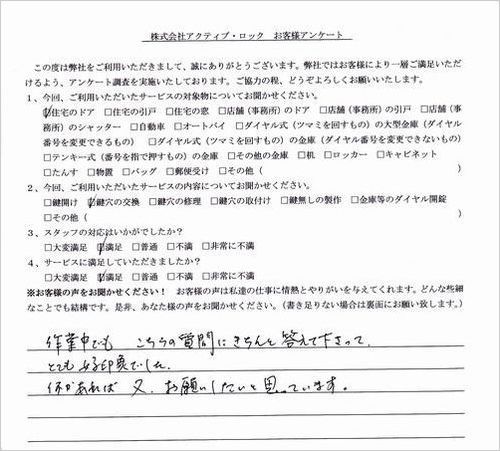 株式会社アクティブ・ロック お客様アンケート
この度は弊社をご利用いただきまして、誠にありがとうございます。弊社ではお客様により一層ご満足いただ
けるよう、アンケート調査を実施いたしております。ご協力の程、どうぞよろしくお願いいたします。
1、今回、ご利用いただいたサービスの対象物についてお聞かせください。
☑住宅のドア □住宅の引戸 □住宅の窓 □店舗（事務所）のドア □店舗（事務所）の引戸 □店舗（事
務所）のシャッター □自動車 □オートバイ □ダイヤル式（ツマミを回すもの）の大型金庫（ダイヤル
番号を変更できるもの） □ダイヤル式（ツマミを回すもの）の金庫（ダイヤル番号を変更できないもの）
□テンキー式（番号を指で押すもの）の金庫 □その他の金庫 □机 □ロッカー □キャビネット
□たんす □物置 □バッグ □郵便受け □その他（ ）
2、今回、ご利用いただいたサービスの内容についてお聞かせください。
□鍵開け ☑鍵穴の交換 □鍵穴の修理 □鍵穴の取付け □鍵無しの製作 □金庫等のダイヤル開錠
□その他（ ）
3、スタッフの対応はいかがでしたか？
□大変満足 ☑満足 □普通 □不満 □非常に不満
4、サービスに満足していただきましたか？
□大変満足 ☑満足 □普通 □不満 □非常に不満
※お客様の声をお聞かせください！ お客様の声は私達の仕事に情熱とやりがいを与えてくれます。どんな些細
なことでも結構です。是非、あなた様の声をお聞かせください。（書き足りない場合は裏面にお願い致します。）
作業中でも こちらの質問にきちんと答えて下さって、
とても好印象でした。
何かあれば 又、お願いしたいと思っています。